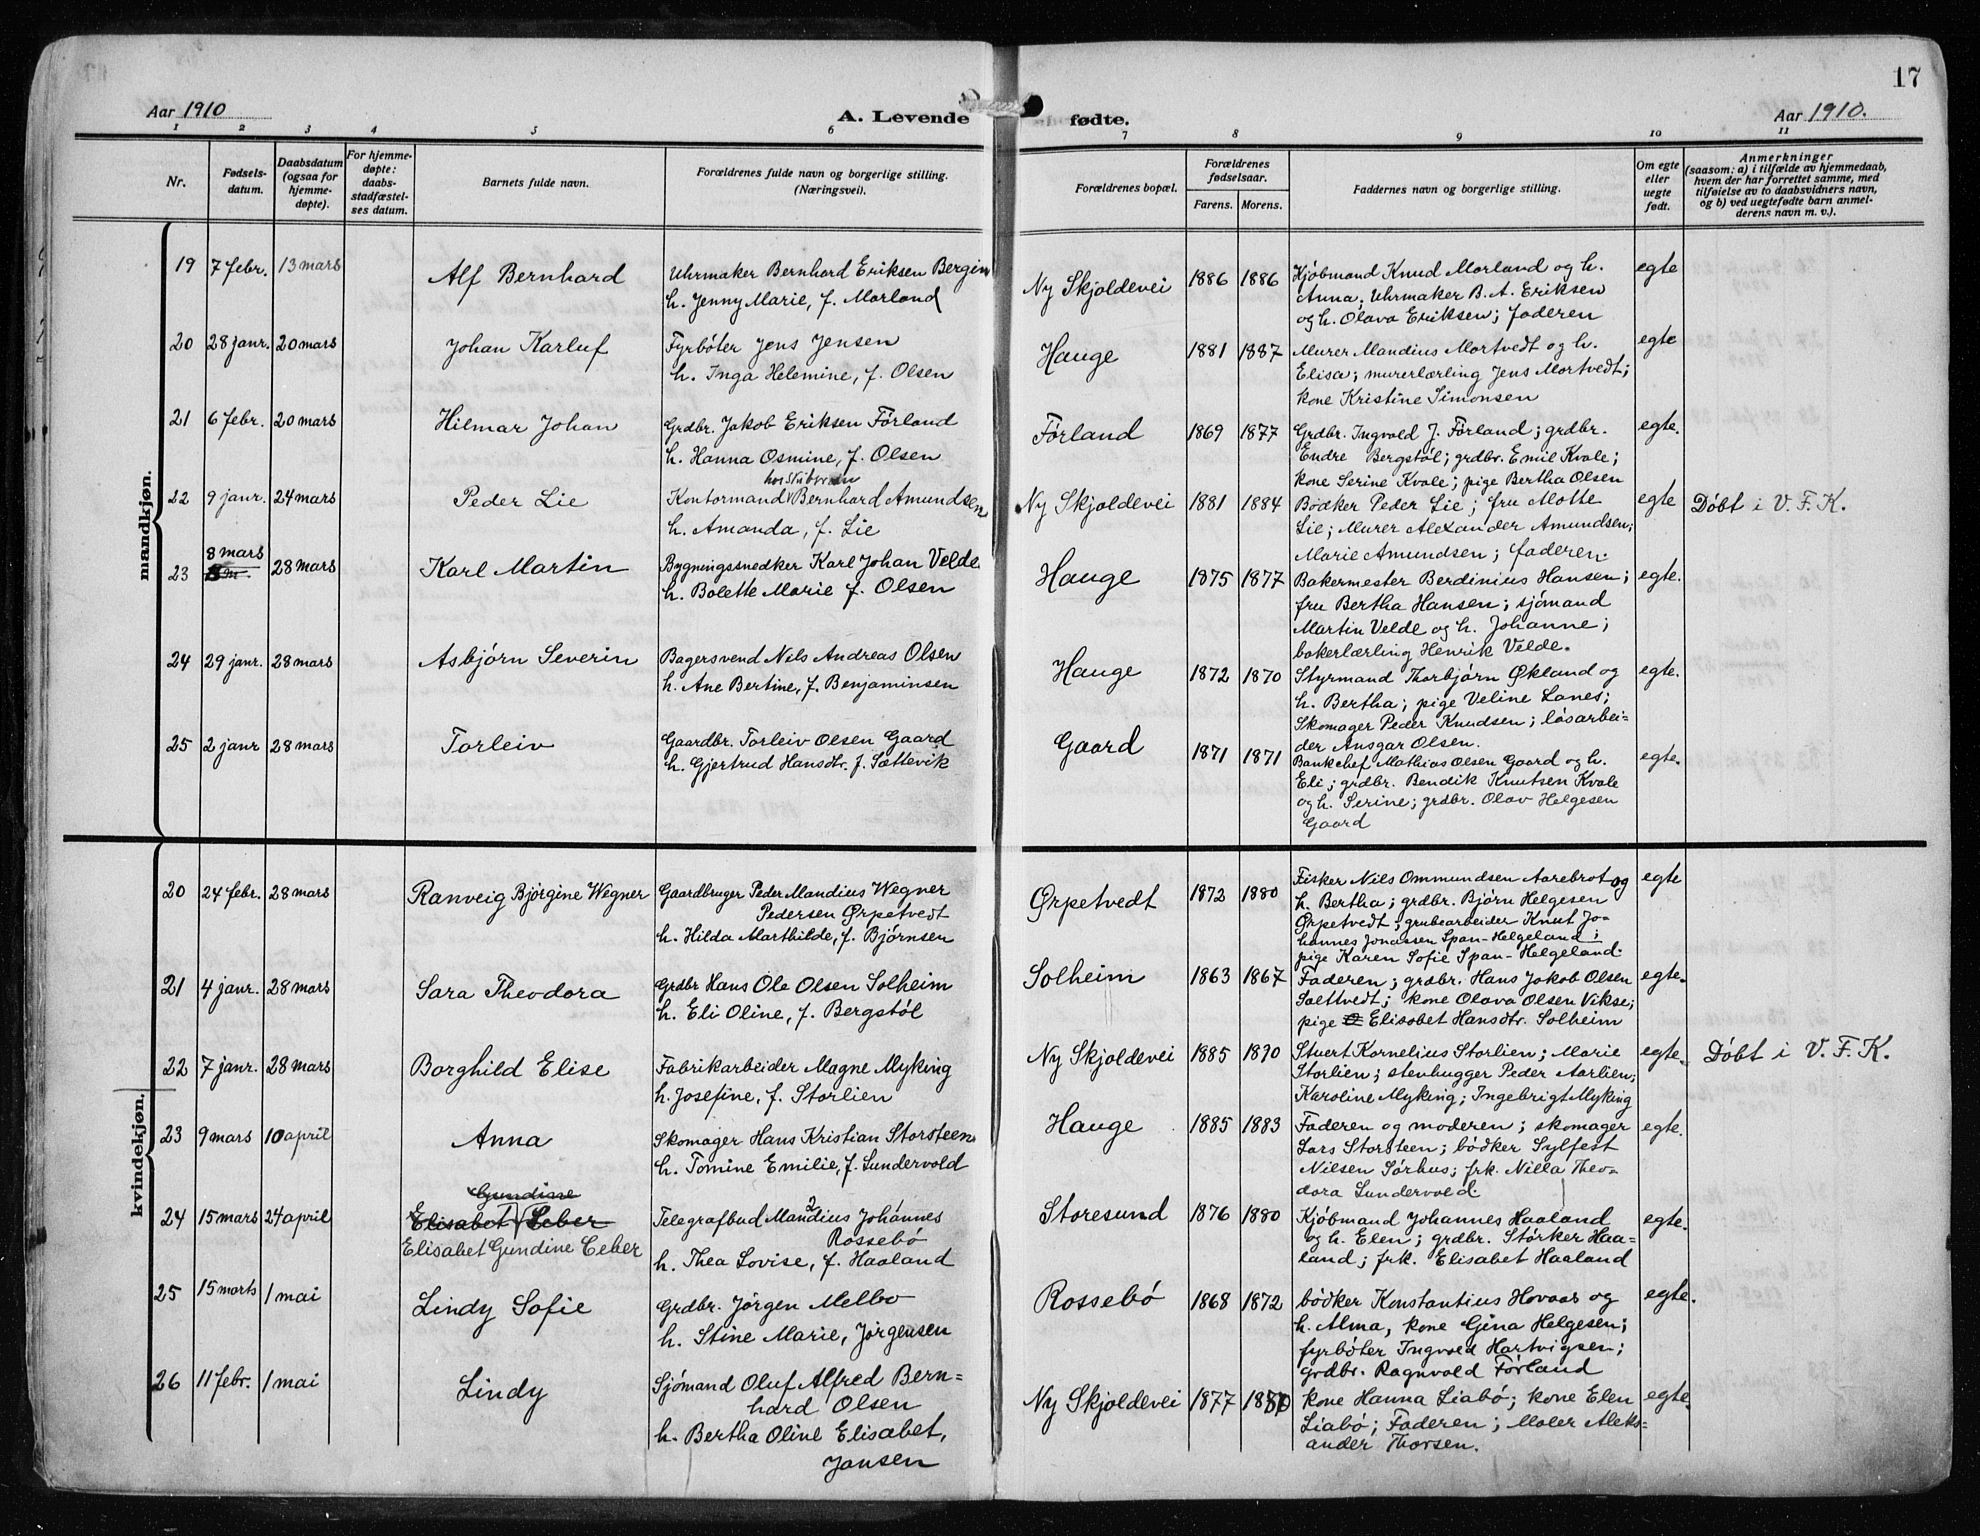 17
Aar 1910
A. Levende fødte.
Aar 1910.
1 2 3 4 5 6 7 8 9 10 11
Nr.
Fødsels-
datum.
Daabsdatum
(ogsaa for
hjemme-
døpte).
For hjemme-
døpte:
daabs-
stadfæstel-
ses datum.
Barnets fulde navn.
Forældrenes fulde navn og borgerlige stilling.
(Næringsvei).
Forældrenes bopæl.
Forældrenes
fødselsaar.
Farens. Morens.
Faddernes navn og borgerlige stilling.
Om egte
eller
uegte
født.
Anmerkninger
(saasom: a) i tilfælde av hjemmedaab,
hvem der har forrettet samme, med
tilføielse av to daabsvidners navn,
og b) ved uegtefødte barn anmel-
derens navn m. v.).
mandkjøn.
19 7 febr. 13 mars Alf Bernhard
Uhrmaker Bernhard Eriksen Bergim
h. Jenny Marie, f. Morland
Ny Skjoldevei 1886 1886
Kjøbmand Knud Morland og h.
Anna; Uhrmaker B. A. Eriksen
og h. Olava Eriksen; faderen
egte
20 28 janr. 20 mars Johan Karluf
Fyrbøter Jens Jensen
h. Inga Helemine, f. Olsen
Hauge 1881 1887
Murer Mandius Mortvedt og h.
Elisa; murerlærling Jens Mortvedt;
kone Kristine Simonsen
egte
21 6 febr. 20 mars Hilmar Johan
Grdbr. Jakob Eriksen Førland
h. Hanna Osmine, f. Olsen
Førland 1869 1877
Grdbr. Ingvald J. Førland; grdbr.
Endre Bergstøl; grdbr. Emil Kvale;
kone Serine Kvale; pige Bertha Olsen
egte.
22 9 janr. 24 mars Peder Lie
Kontormand Bernhard Amundsen
h. Amanda, f. Lie
Ny Skjoldevei 1881 1884
Bødker Peder Lie; fru Motte
Lie; Murer Alexander Amundsen;
Marie Amundsen; faderen.
egte Døbt i V. F. K.
23 8 mars 28 mars Karl Martin
Bygningssnedker Karl Johan Velde
h. Bolette Marie f. Olsen
Hauge 1875 1877
Bakermester Berdinius Hansen;
fru Bertha Hansen; sjømand
Martin Velde og h. Johanne;
bakerlærling Henrik Velde.
egte.
24 29 janr. 28 mars Asbjørn Severin
Bagersvend Nils Andreas Olsen
h. Ane Bertine, f. Benjaminsen
Hauge 1872 1870
Styrmand Thorbjørn Økland og
h. Bertha; pige Veline Lanes;
Skomager Peder Knudsen; løsarbei-
der Ansgar Olsen.
egte.
25 2 janr 28 mars Torleiv
Gaardbr. Torleiv Olsen Gaard
h. Gjertrud Hansdtr. f. Sættevik
Gaard 1871 1871
Bankchef Mathias Olsen Gaard og h.
Eli; grdbr. Bendik Knutsen Kvale
og h. Serine; grdbr. Olav Helgesen
Gaard
egte.
kvindekjøn.
20 24 febr. 28 mars Ranveig Bjørgine Wegner
Gaardbruger Peder Mandius Wegner
Pedersen Ørpetvedt
h. Hilda Marthilde, f. Bjørnsen
Ørpetvedt 1872 1880
Fisker Nils Ommundsen Aarebrot og
h. Bertha; grdbr. Bjørn Helgesen
Ørpetvedt; grubearbeider Knut Jo-
hannes Jonassen Span-Helgeland;
pige Karen Sofie Span-Helgeland.
egte
21 4 janr. 28 mars Sara Theodora
Grdbr Hans Ole Olsen Solheim
h. Eli Oline, f. Bergstøl
Solheim 1863 1867
Faderen; grdbr. Hans Jakob Olsen
Saettvedt; kone Olava Olsen Vikse;
pige Elisabet Hansdtr. Solheim
egte.
22 7 janr. 28 mars Borghild Elise
Fabrikarbeider Magne Myking
h. Josefine, f. Storlien
Ny Skjoldevei 1885
Stuert Kornelius Storlien; Marie
Storlien; stenhugger Peder Aarlien;
Karoline Myking; Ingebrigt Myking
egte. Døbt i V. F. K.
23 9 mars 10 april Anna
Skomager Hans Kristian Storsteen
h. Tomine Emilie, f. Lundervold
Hauge 1885 1883
Faderen og moderen; skomager
Lars Storsteen; bødker Sylfest
Nilsen Sørhus; frk. Nilla Theo-
dora Lundervold.
egte.
Gundine
24 15 mars 24 april Elisabet Ceber
Elisabet Gundine Ceber
Telegrafbud Mandius Johannes
Rossebø
h. Thea Lovise, f. Haaland
Storesund 1876 1880
Kjøbmand Johannes Haaland
og h. Elen; grdbr. Størker Haa-
land; frk. Elisabet Haaland
egte.
25 15 marts 1 mai Lindy Sofie
Grdbr. Jørgen Melbo
h. Stine Marie, Jørgensen
Rossebø 1868 1872
bødker Konstantius Hovaas og
h. Alma, kone Gina Helgesen;
fyrbøter Ingvald Hartvigsen;
grdbr. Ragnvald Førland
egte.
26 11 febr. 1 mai Lindy
Sjømand Oluf Alfred Bern=
hard Olsen
h. Bertha Oline Elisabet,
Jansen
Ny Skjoldevei 1877
kone Hanna Liabø; kone Elen
Liabø; Faderen; Maler Aleks-
ander Thorsen.
egte.